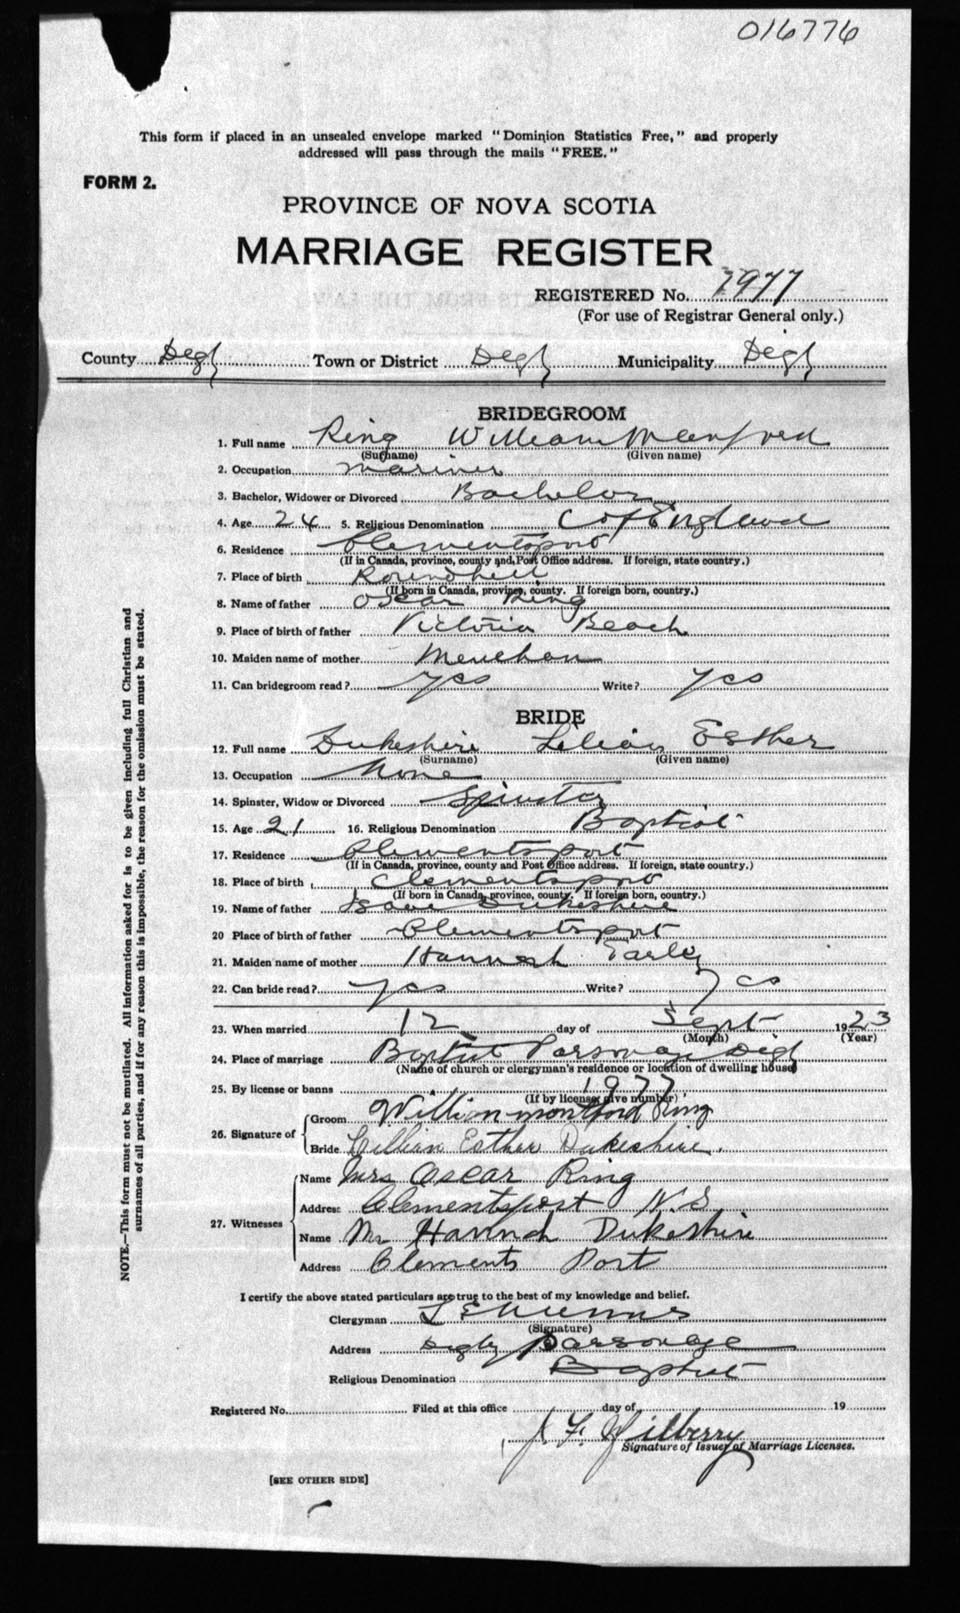 016776
This form if placed in an unsealed envelope marked "Dominion Statistics Free," and properly
addressed will pass through the mails "FREE."
FORM 2.
PROVINCE OF NOVA SCOTIA
MARRIAGE REGISTER
REGISTERED No. 1977
(For use of Registrar General only.)
County Digby Town or District Digby Municipality Digby
BRIDEGROOM
1. Full name Ring William Manfred
(Surname) (Given name)
2. Occupation Mariner
3. Bachelor, Widower or Divorced Bachelor
4. Age 24 5. Religious Denomination C of England
6. Residence Clementsport
(If in Canada, province, county and Post Office address. If foreign, state country.)
7. Place of birth Roundhill
(If born in Canada, province, county. If foreign born, country.)
8. Name of father Oscar Ring
9. Place of birth of father Victoria Beach
10. Maiden name of mother
11. Can bridegroom read? yes Write? yes
BRIDE
12. Full name Dukeshire Lilian Esther
(Surname) (Given name)
13. Occupation None
14. Spinster, Widow or Divorced Spinster
15. Age 21 16. Religious Denomination Baptist
17. Residence Clementsport
(If in Canada, province, county and Post Office address. If foreign, state country.)
18. Place of birth Clementsport
(If born in Canada, province, county. If foreign born, country.)
19. Name of father Isaac Dukeshire
20 Place of birth of father Clementsport
21. Maiden name of mother Hannah
22. Can bride read? yes Write? yes
23. When married 12 day of Sept 1923
(Month) (Year)
24. Place of marriage Baptist Parsonage Digby
(Name of church or clergyman's residence or location of dwelling house)
25. By license or banns 1977
(If by license, give number)
26. Signature of Groom William montford Ring
Bride Lillian Esther Dukeshire.
27. Witnesses Name Mrs Oscar Ring
Address Clementsport N.S
Name Mrs Hannah Dukeshire
Address Clements Port
I certify the above stated particulars are true to the best of my knowledge and belief.
Clergyman
(Signature)
Address Digby Parsonage
Religious Denomination Baptist
Registered No. Filed at this office day of 19
Signature of Issuer of Marriage Licenses.
[SEE OTHER SIDE]
NOTE.—This form must not be mutilated. All information asked for is to be given including full Christian and
surnames of all parties, and if for any reason this is impossible, the reason for the omission must be stated.